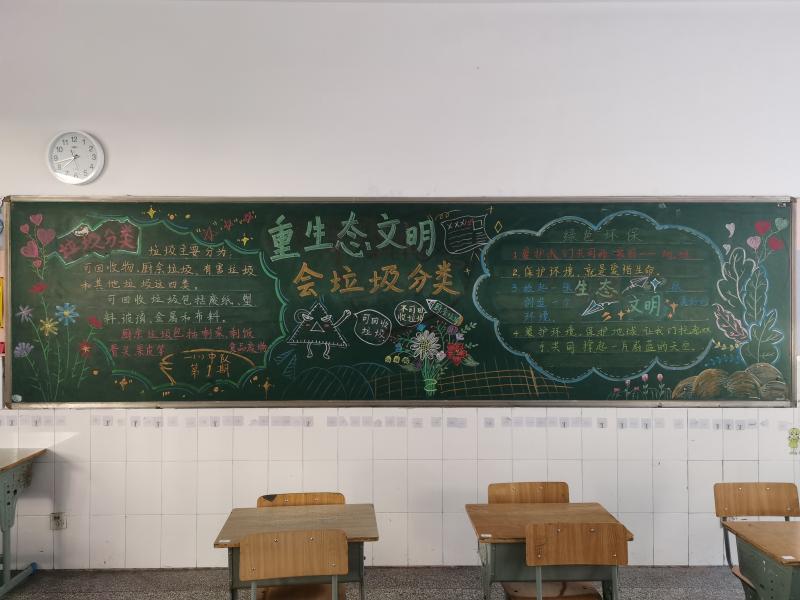 垃圾分类
垃圾主要分为:
可回收物,厨余垃圾,有害垃圾
和其他垃圾这四类。
可回收垃圾包括废纸,塑
料,玻璃,金属和布料。
厨余垃圾包括剩菜,剩饭
骨头,果皮等
食品废物
一(1)中队
第1期
重生态文明
会垃圾分类
可回收
垃圾
不可回
收垃圾
绿色环保
1.爱护我们共同的家园——地球
2.保护环境,就是爱惜生命。
生态
文明
创造一个
环境
4.爱护环境,保护地球让我们
手共同撑起一片蔚蓝的天空。
12 1 2 3 4 5 6 7 8 9 10 11